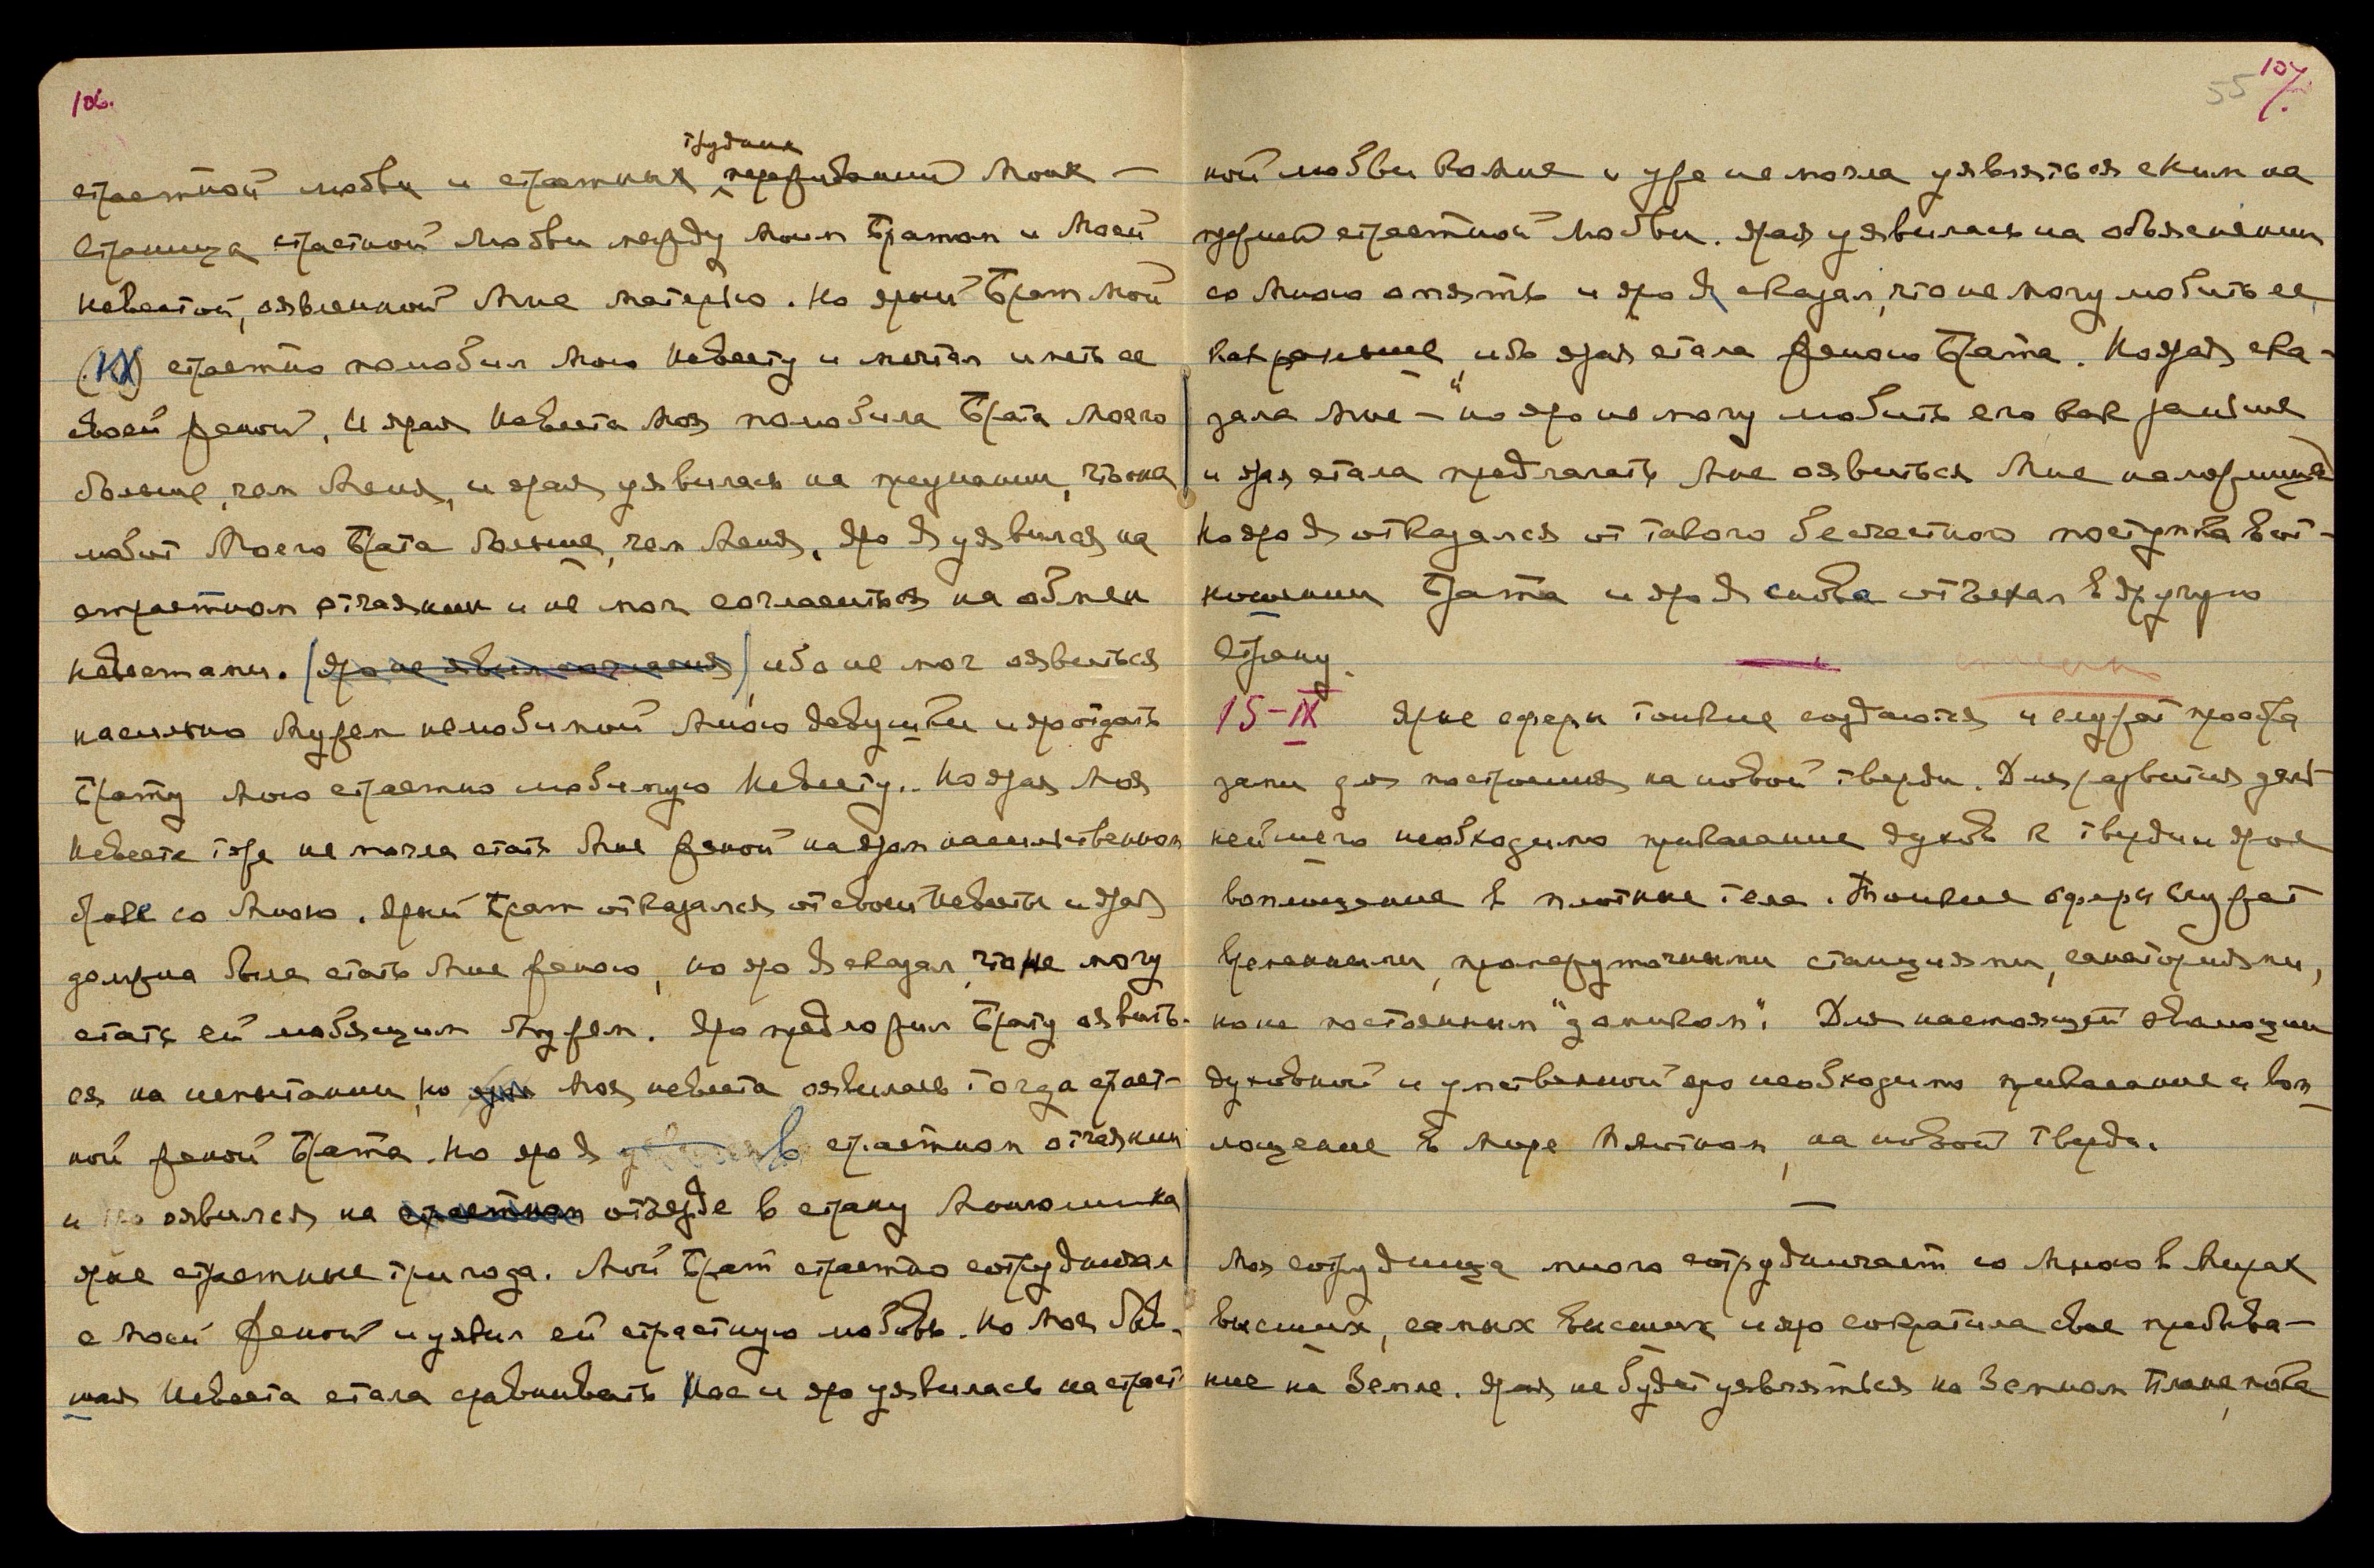 106.
трудных
страстной любви и страстных переживаний Моих —
страница страстной Любви между Моим Братом и Моей
Невестой, оявленной Мне матерью. Но ярый Брат Мой
(КХ) страстно полюбил Мою Невесту и мечтал иметь ее
своей женой. И ярая Невеста Моя полюбила Брата Моего
больше, чем Меня, и ярая уявилась на признании, что она
любит Моего Брата больше, чем Меня. Яро Я уявился на
страстном отчаянии и не мог согласиться на обмен
невестами. (Яро не явил согласия), ибо не мог оявиться
насильно Мужем нелюбимой Мною девушки и яро отдать
Брату Мою страстно любимую Невесту.. Но ярая Моя
Невеста тоже не могла стать Мне женой на яром насильственном
браке со Мною. Ярый Брат отказался от своей Невесты и ярая
должна была стать Мне женою, но яро Я сказал, что не могу
стать ей любящим Мужем. Яро предложил Брату оявить-
ся на испытании, но ярая Моя невеста оявилась тогда страст-
ной женой Брата. Но яро Я в страстном отчаянии
и яро оявился на страстном отъезде в страну Монюшина
ярые страстные три года. Мой Брат страстно сотрудничал
с Моей женой и уявил ей страстную любовь. Но Моя быв-
шая Невеста стала сравнивать Нас и яро уявилась на страст-
55 107.
ной любви ко Мне и уже не могла уявляться с Ним на
прежней страстной Любви. Ярая уявилась на объяснении
со Мною опять и яро Я сказал, что не могу любить ее,
как раньше, ибо ярая стала женою Брата. Но ярая ска-
зала Мне — "но яро не могу любить его как раньше
и ярая стала предлагать Мне оявиться Мне наложницей
Но яро Я отказался от такого бесчестного поступка в от-
ношении Брата и яро Я снова отъехал в другую
страну.
15-IX Ярые сферы тонкие создаются и служат прообра
зами для построения на новой тверди. Для развития даль
нейшего необходимо прикасание духов к тверди и ярое
воплощение в плотные тела. Тонкие сферы служат
временными, промежуточными станциями, санаториями,
но не постоянным "домиком". Для настоящей эволюции
духовной и умственной яро необходимо прикасание и воп
лощение в Мире плотном, на новой тверди.
—
Моя сотрудница много сотрудничает со Мною в Мирах
высших, самых высших и яро сократила свое пребыва-
ние на Земле. Ярая не будет уявляться на Земном плане, пока